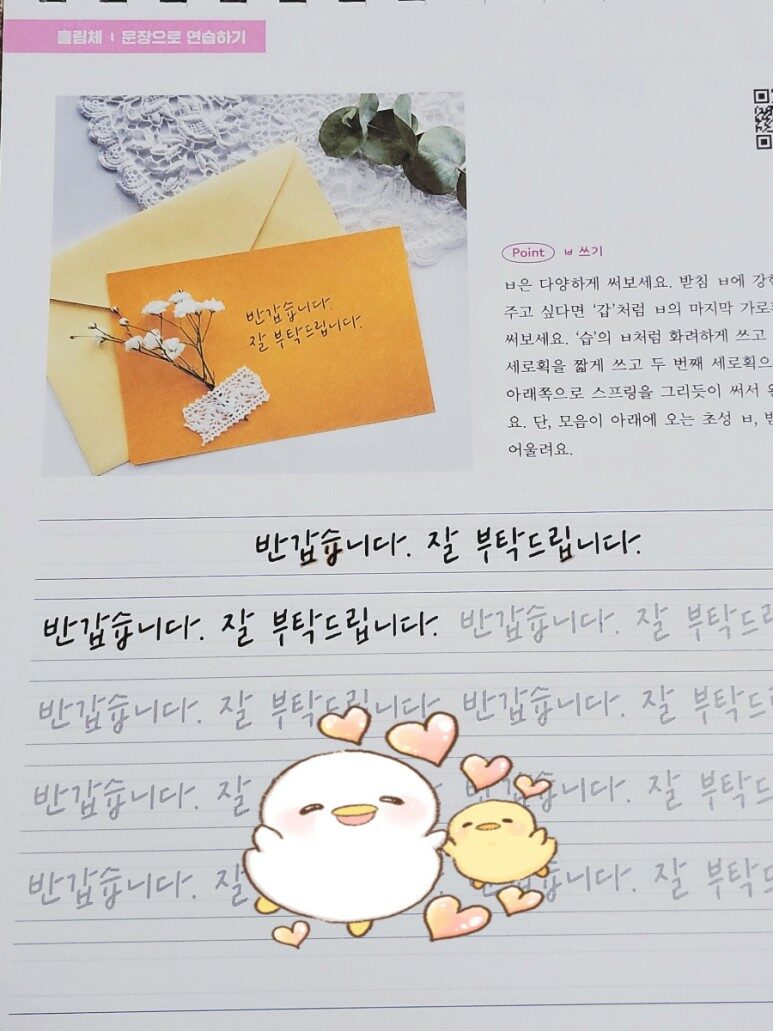 흘림체 | 문장으로 연습하기
반갑습니다.
잘 부탁드립니다.
Point ㅂ 쓰기
ㅂ은 다양하게 써보세요. 받침 ㅂ에
주고 싶다면 ‘갑’처럼 ㅂ의 마지막
써보세요. ‘습’의 ㅂ처럼 화려하게 쓰고
세로획을 짧게 쓰고 두 번째
아래쪽으로 스프링을 그리듯이 써서
요. 단, 모음이 아래에 오는 초성 ㅂ,
어울려요.
반갑습니다. 잘 부탁드립니다.
반갑습니다. 잘 부탁드립니다. 반갑습니다. 잘
반갑습니다. 잘 부탁드립니다. 반갑습니다. 잘
반갑습니다. 잘 반갑습니다. 잘
반갑습니다. 잘 반갑습니다. 잘